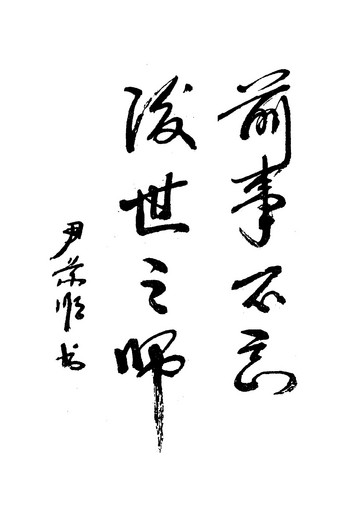 前事不忘
後世之師
尹崇順书